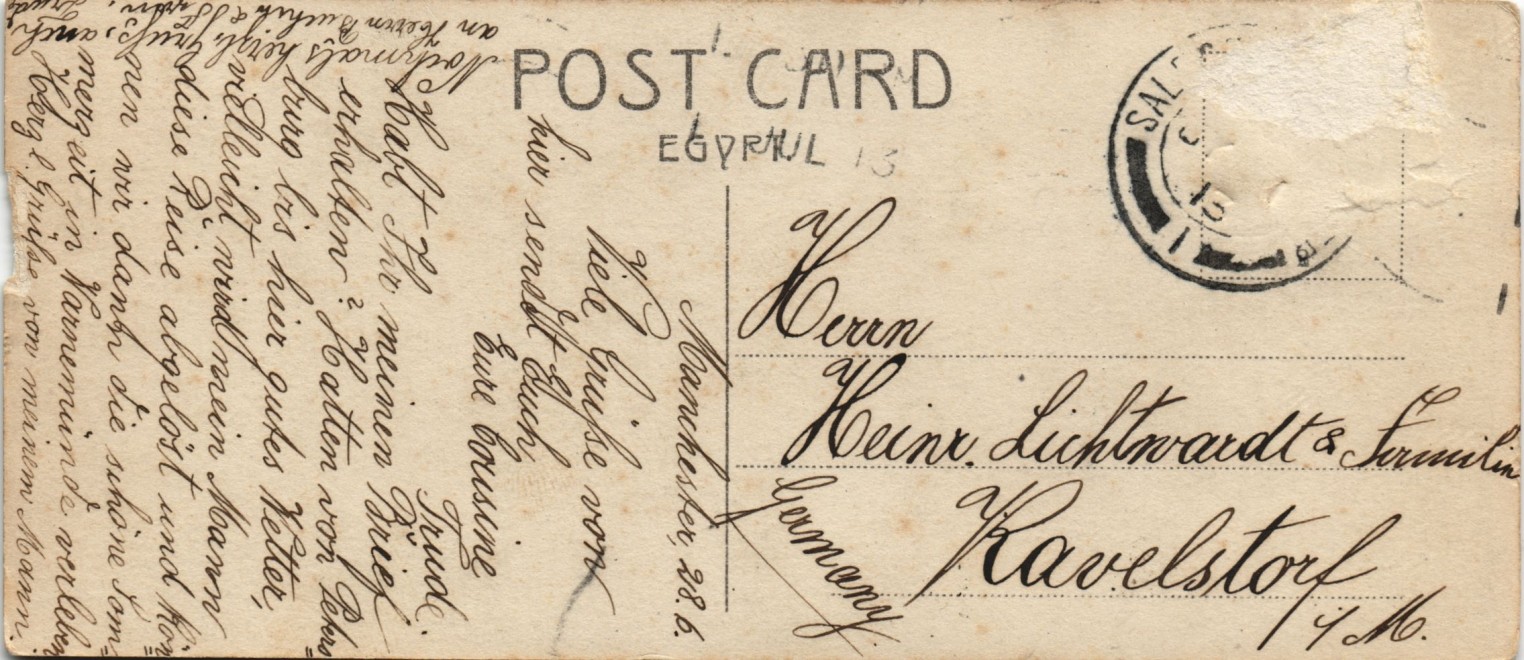 POST CARD
Manchester, 28.6.
Viele Grüße von
hier sendet Euch
Eure Cousine
Trude.
Habt Ihr meinen Brief
erhalten? Hatten von Peters=
burg bis hier gutes Wetter,
vielleicht wird mein Mann
diese Reise abgelöst und kön=
nen wir dann die schöne Som=
merzeit in Warnemünde verleben
Herzl. Grüße von meinem Mann.
Nochmals herzl. Gruß, auch
an Herrn
Herrn
Heinr. Lichtwardt & Familie
Ravelstorf
i/M.
Germany
SAL